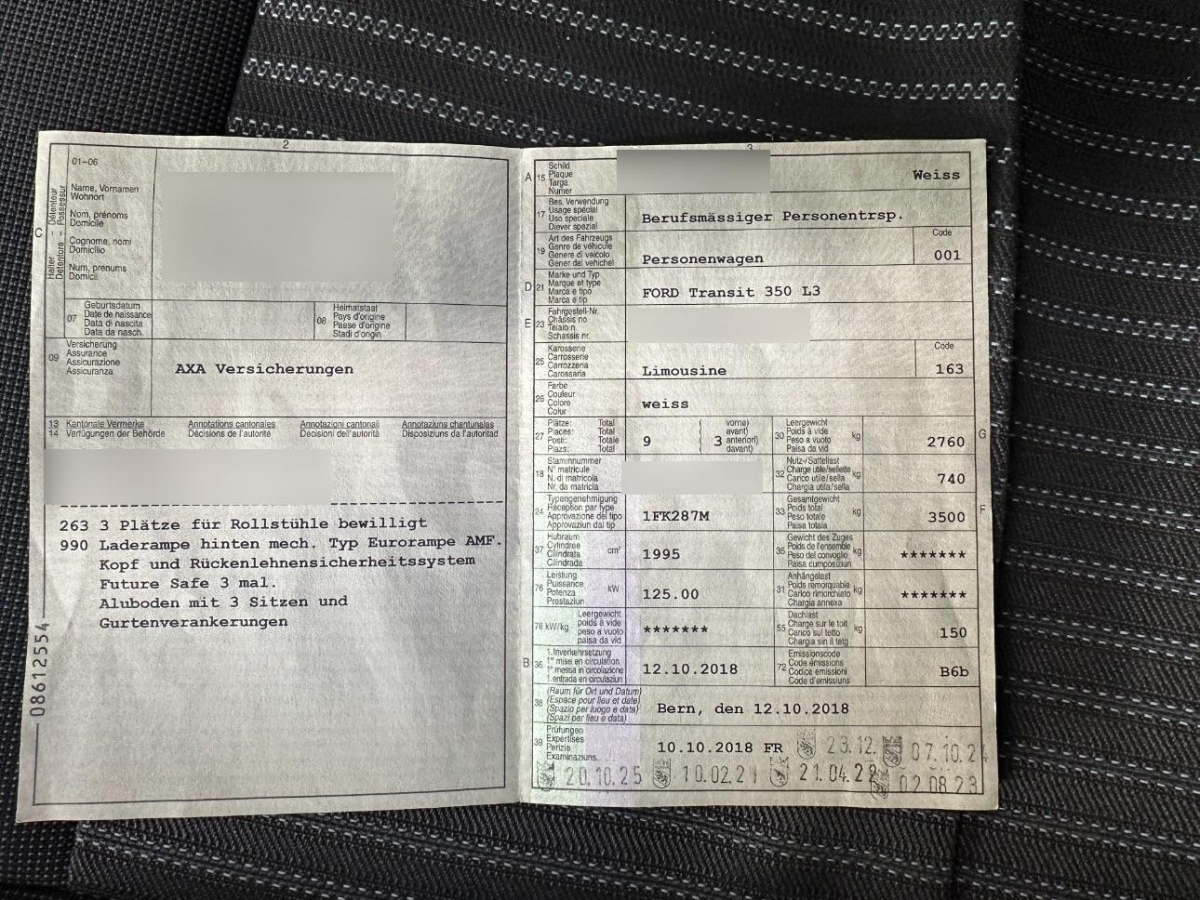 2
01-06
Halter – Détenteur
Detentore – Possessur
C
Name, Vornamen
Wohnort
Nom, prénoms
Domicile
Cognome, nomi
Domicilio
Num, prenums
Domicil
07
Geburtsdatum
Date de naissance
Data di nascita
Data da nasch.
08
Heimatstaat
Pays d'origine
Paese d'origine
Stadi d'origin
09
Versicherung
Assurance
Assicurazione
Assicuranza
AXA Versicherungen
13 Kantonale Vermerke Annotations cantonales Annotazioni cantonali Annotaziuns chantunalas
14 Verfügungen der Behörde Décisions de l'autorité Decisioni dell'autorità Disposiziuns da l'autoritad
263 3 Plätze für Rollstühle bewilligt
990 Laderampe hinten mech. Typ Eurorampe AMF.
Kopf und Rückenlehnensicherheitssystem
Future Safe 3 mal.
Aluboden mit 3 Sitzen und
Gurtenverankerungen
08612554
3
A 15
Schild
Plaque
Targa
Numer
Weiss
17
Bes. Verwendung
Usage spécial
Uso speciale
Diever spezial
Berufsmässiger Personentrsp.
19
Art des Fahrzeugs
Genre de véhicule
Genere di veicolo
Gener dal vehichel
Personenwagen
Code
001
D 21
Marke und Typ
Marque et type
Marca e tipo
Marca e tip
FORD Transit 350 L3
E 23
Fahrgestell-Nr.
Châssis no
Telaio n.
Schassis nr.
25
Karosserie
Carrosserie
Carrozzeria
Carossaria
Limousine
Code
163
26
Farbe
Couleur
Colore
Colur
weiss
27
Plätze: Total
Places: Total
Posti: Totale
Plazs: Total
9
3
vorne)
avant)
anteriori)
davant)
30
Leergewicht
Poids à vide
Peso a vuoto
Paisa da vid
kg
2760
G
18
Stammnummer
N° matricule
N. di matricola
Nr. da matricla
32
Nutz-/Sattellast
Charge utile/sellette
Carico utile/sella
Chargia utila/sella
kg
740
24
Typengenehmigung
Réception par type
Approvazione del tipo
Approvaziun dal tip
1FK287M
33
Gesamtgewicht
Poids total
Peso totale
Paisa totala
kg
3500
F
37
Hubraum
Cylindrée
Cilindrata
Cilindrada
cm³
1995
35
Gewicht des Zuges
Poids de l'ensemble
Peso del convoglio
Paisa cumposiziun
kg
*******
76
Leistung
Puissance
Potenza
Prestaziun
kW
125.00
31
Anhängelast
Poids remorquable
Carico rimorchiato
Chargia annexa
kg
*******
78 kW/kg
Leergewicht
poids à vide
peso a vuoto
paisa da vid
*******
55
Dachlast
Charge sur le toit
Carico sul tetto
Chargia sin il tetg
kg
150
B 36
1. Inverkehrsetzung
1re mise en circulation
1a messa in circolazione
1. entrada en circulaziun
12.10.2018
72
Emissionscode
Code émissions
Codice emissioni
Code d'emissiuns
B6b
38
(Raum für Ort und Datum)
(Espace pour lieu et date)
(Spazio per luogo e data)
(Spazi per lieu e data)
Bern, den 12.10.2018
39
Prüfungen
Expertises
Perizie
Examinaziuns
10.10.2018 FR
23.12.
07.10.2
20.10.25
10.02.21
21.04.22
02.08.23